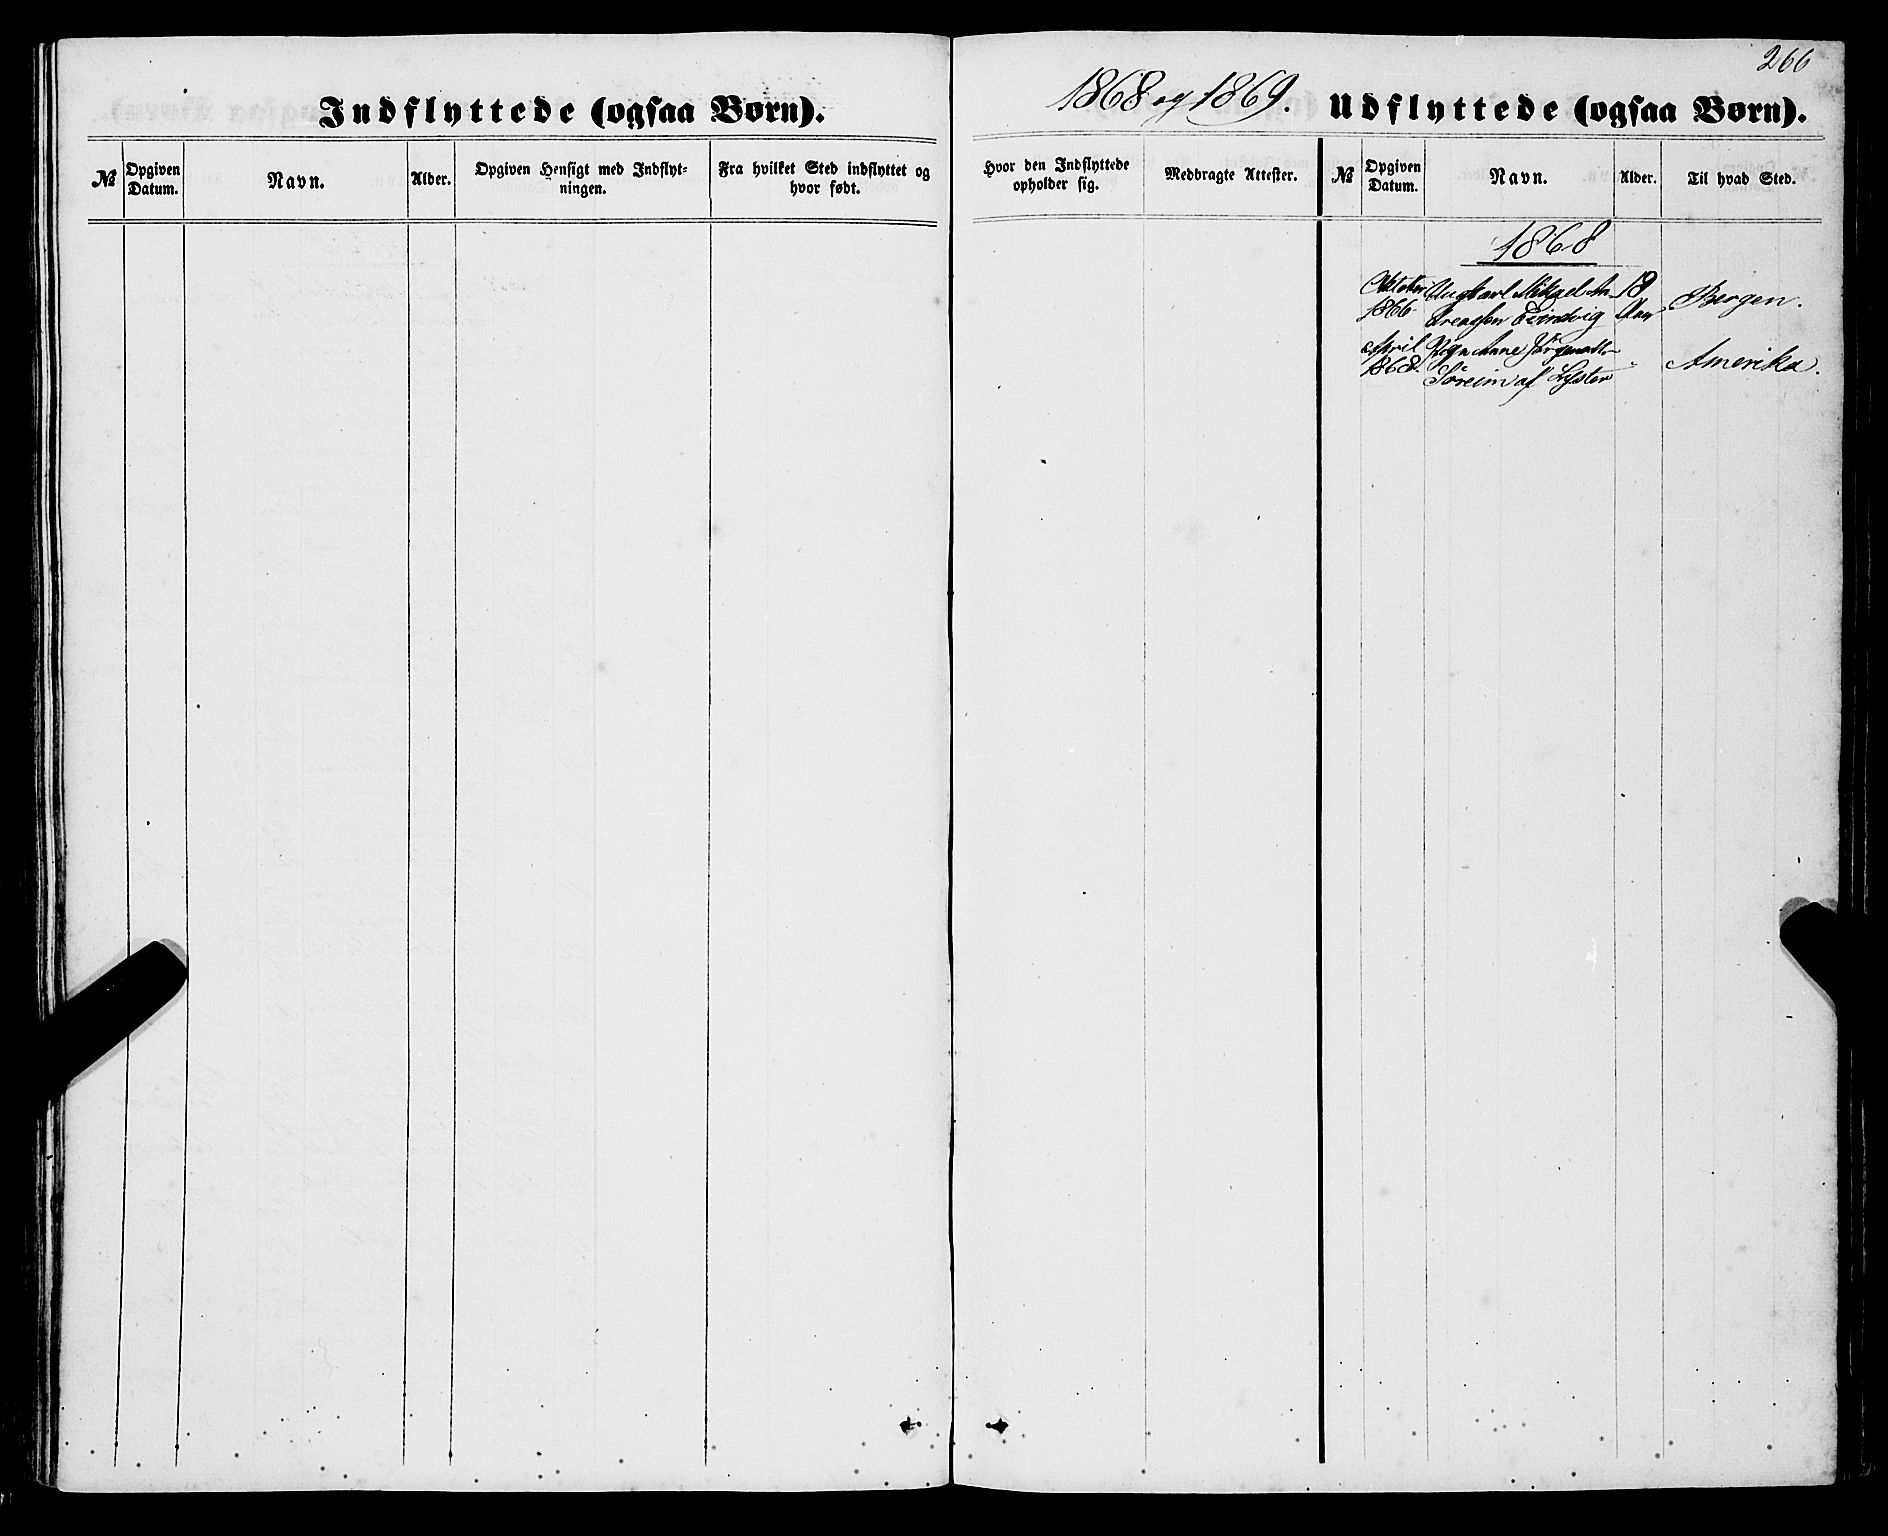 266
Indflyttede (ogsaa Børn).
№
Opgiven
Datum.
Navn.
Alder.
Opgiven Hensigt med Indflyt-
ningen.
Fra hvilket Sted indflyttet og
hvor født.
1868 og 1869.
Udflyttede (ogsaa Børn).
Hvor den Indflyttede
opholder sig.
Medbragte Attester.
№
Opgiven
Datum.
Navn.
Alder.
Til hvad Sted.
1868
Oktober
1866
Karl Mikael An-
Eivindvig
18
Aar
Bergen.
April
1868.
Anne
Søreim af Lyster
Amerika.